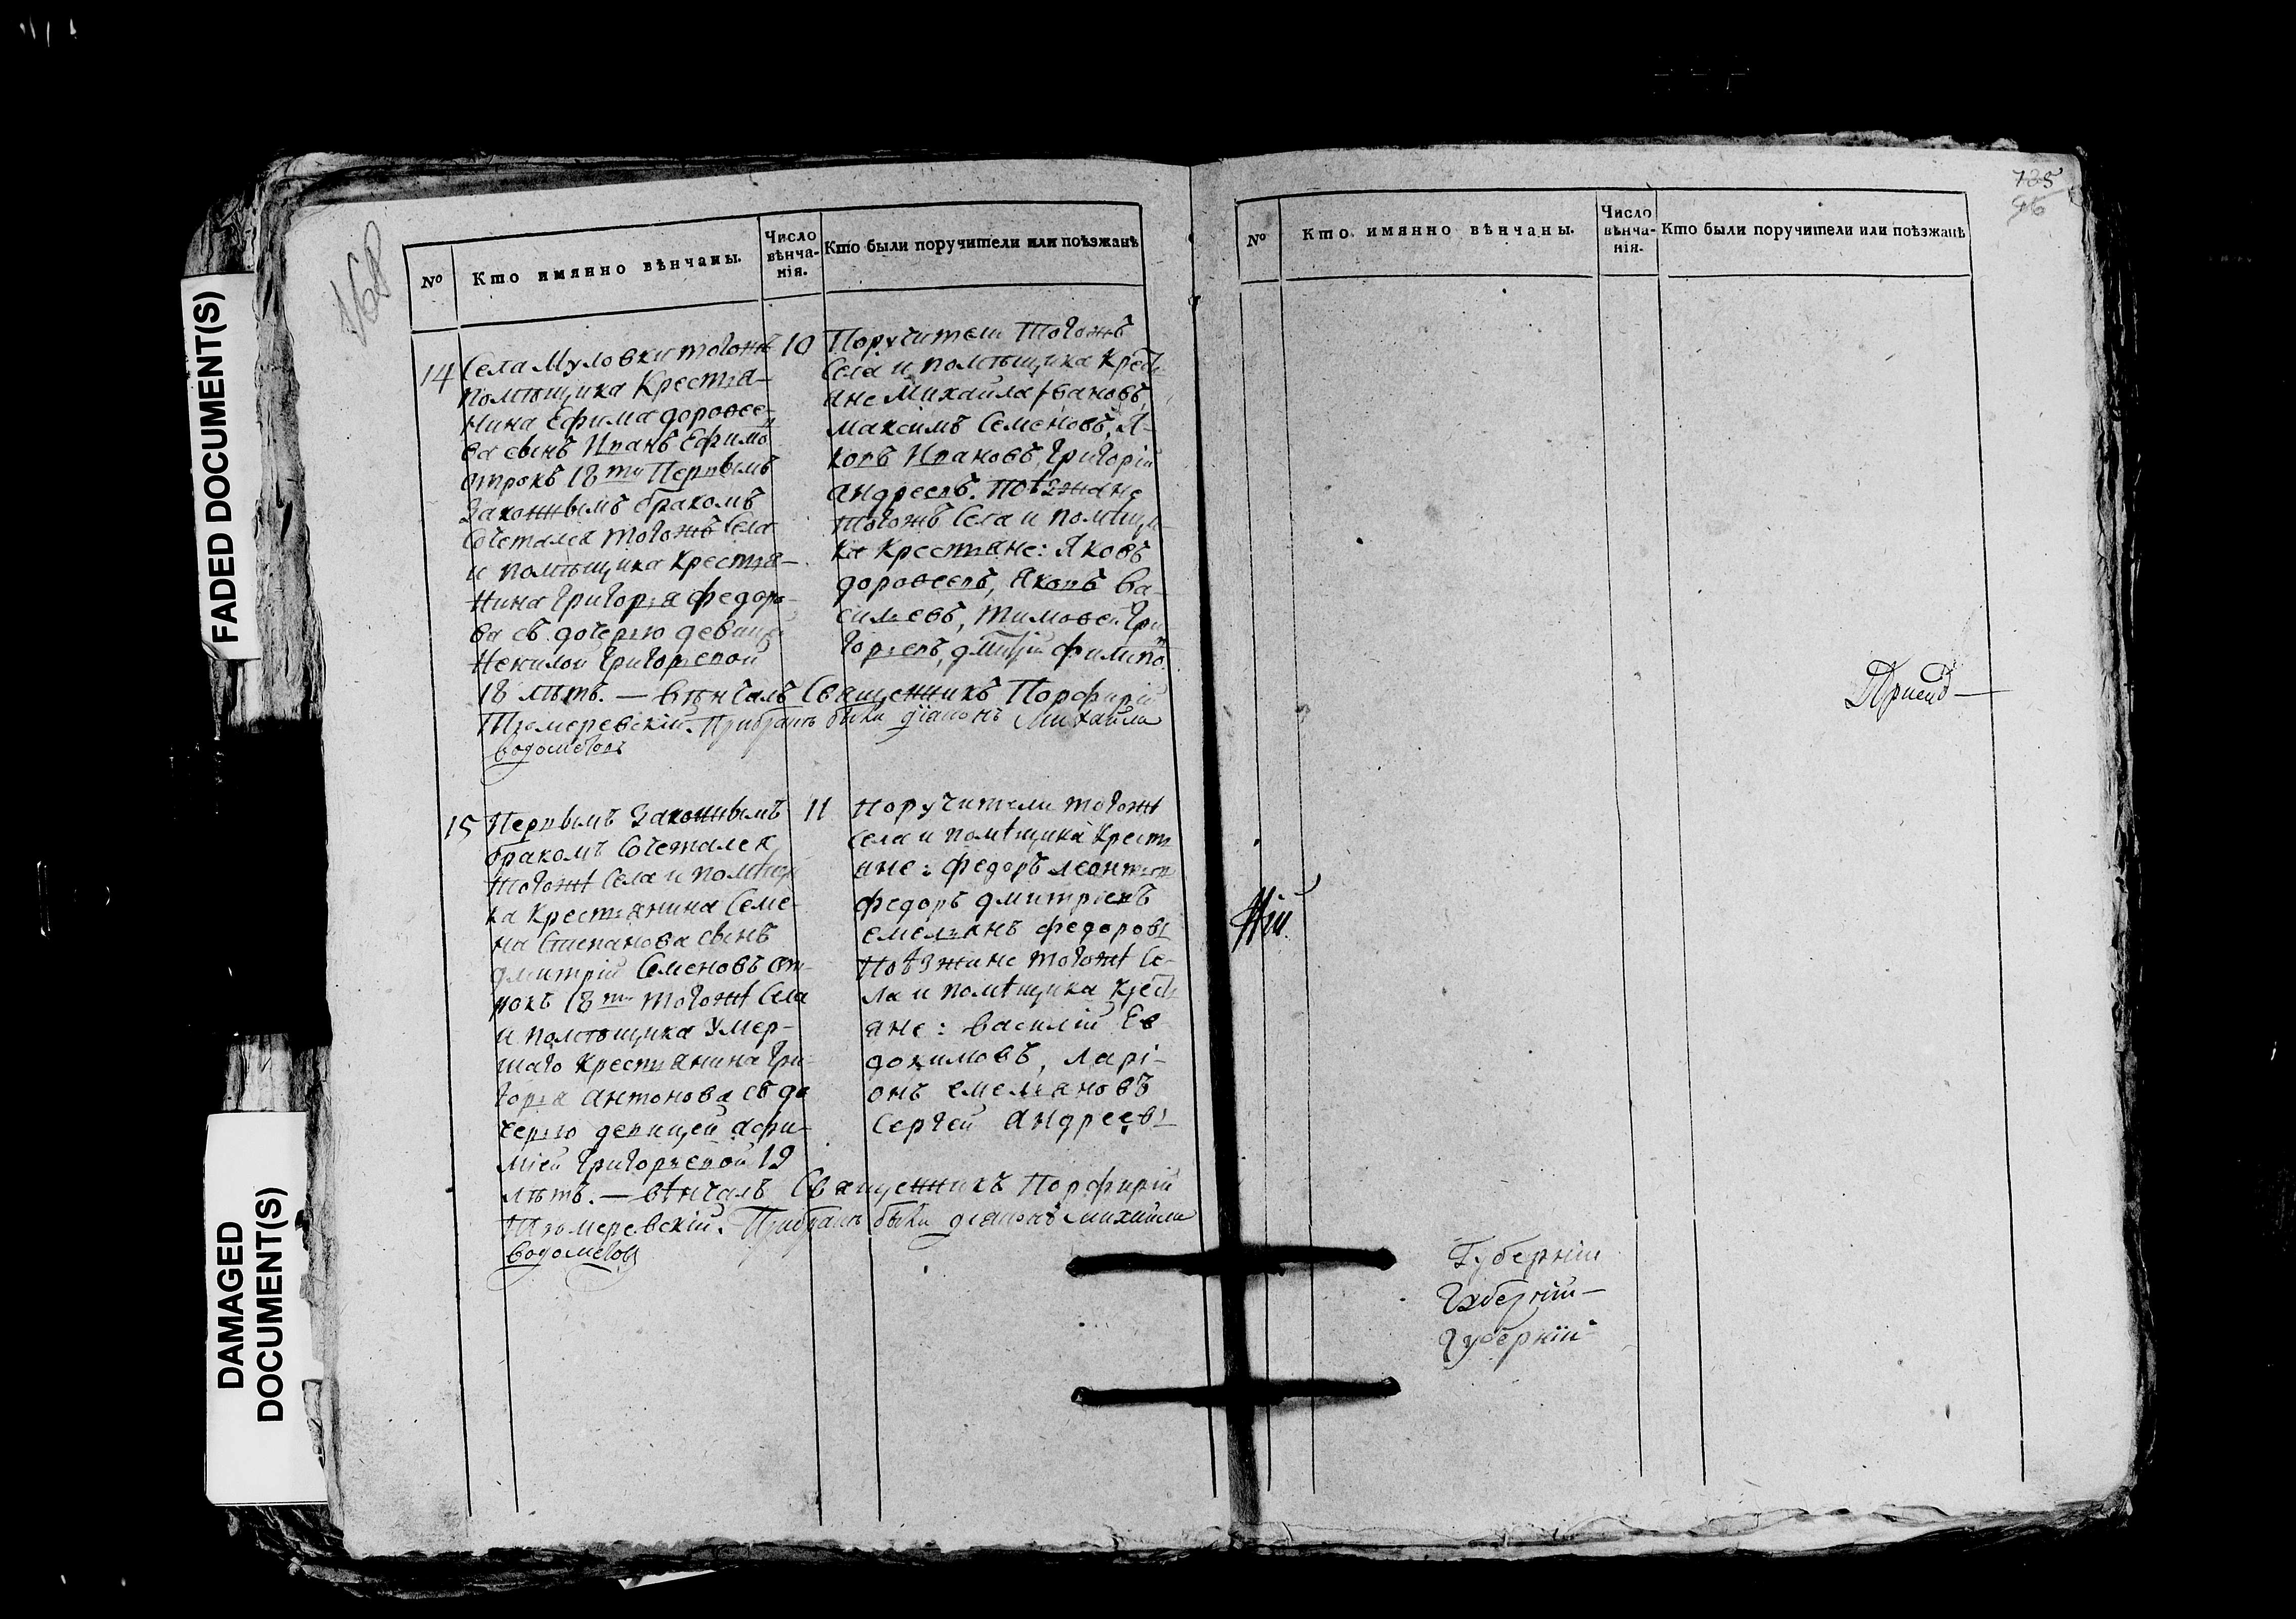 FADED DOCUMENT(S)
DAMAGED
DOCUMENT(S)
168
№
Кто имянно вѣнчаны.
Число
вѣнча-
нія.
Кто были поручители или поѣзжанѣ
14
Села Муловки тогожъ
помѣщика Крестья-
нина Ефима дороѳее-
ва сынъ Иванъ Ефимо
отрокъ 18ти Первымъ
Законнымъ бракомъ
Сочетался тогожъ Села
и помѣщика Крестья-
нина Григорья федоро-
ва съ дочерью девицей
Ненилой Григорьевой
18 лѣтъ. — вѣнчалъ Священникъ Порфирій
Тюмеревскій. при были діаконъ Михайла
водометовъ
10
Поручители Тогожъ
Села и помѣщика Кресть
яне Михайла Ивановъ,
максимъ Семеновъ, Я-
ковъ Ивановъ, Григорій
андреевъ. поѣзжане
тогожъ Села и помѣщи-
ка Крестьяне: Яковъ
дороѳеевъ, Яковъ Ва-
сильевъ, тимоѳей Гри
горьевъ, дмитрій филипо
15
Первымъ Законнымъ
бракомъ Сочетался
тогожъ Села и помѣщи
ка Крестьянина Семе-
на Степанова сынъ
дмитрій Семеновъ от-
рокъ 18ти тогожъ Села
и помѣщика Умер-
шаго Крестьянина Гри-
горья антонова съ до
черью девицей афи-
міей Григорьевой 19
лѣтъ. — вѣнчалъ Священникъ Порфирій
Тюмеревскій. При были діаконъ михайла
водометовъ
11
Поручители тогожъ
Села и помѣщика Крестья
яне: федоръ леонтьев
федоръ дмитріевъ
емельянъ федоровъ
Поѣзжане тогожъ Се-
ла и помѣщика Кресть
яне: василій Ев
докимовъ, ларі-
онъ емельяновъ
Сергей андреевъ
735
96
№
Кто имянно вѣнчаны.
Число
вѣнча-
нія.
Кто были поручители или поѣзжанѣ
Губерніи
Губерніи —
Губерніи